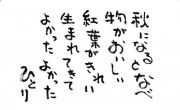 秋になるとなべ
物がおいしい
紅葉がきれい
生まれてきて
よかったよかった
ひとり